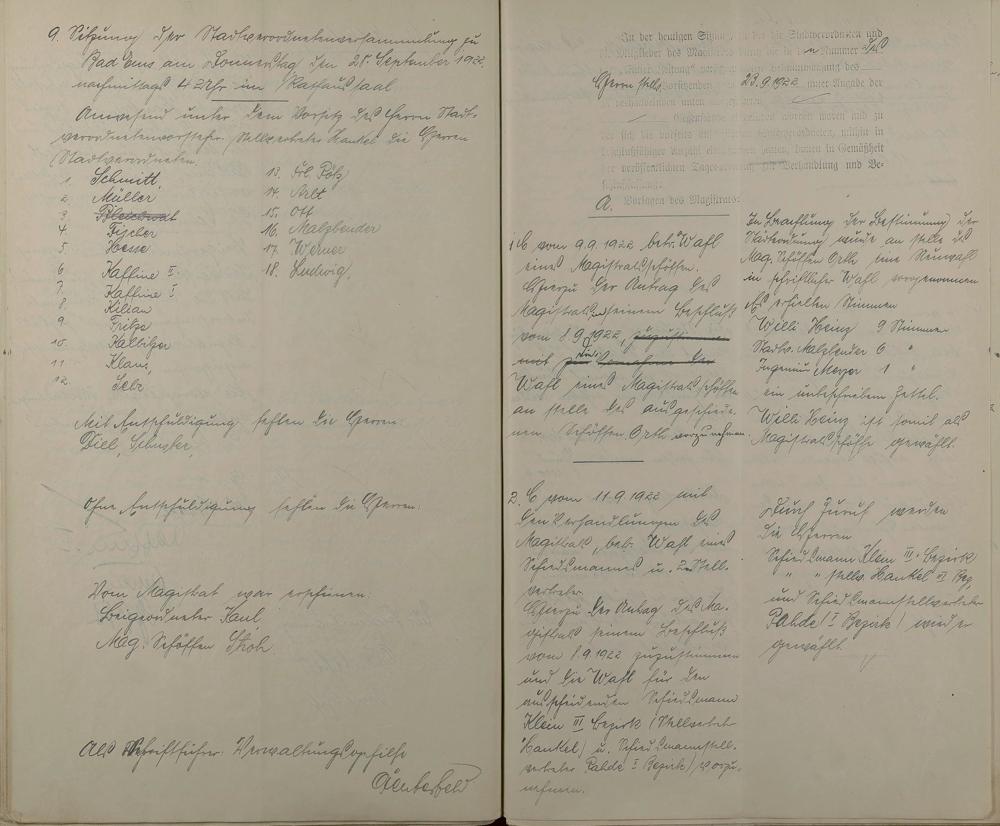 9. Sitzung der Stadtverordnetenversammlung zu
Bad Ems am Donnerstag den 28. September 1922
nachmittags 4 Uhr im Rathaussaal
Anwesend unter dem Vorsitz des Herrn Stadt-
verordnetenvorsteher Stellvertreter Hankel die Herren
Stadtverordneten.
1. Schmitt,
2. Müller
3
4 Fischer
5. Hesse
6 Kaffine II.
7 Kaffine I
8 Kilian
9 Fritze
10. Kalbitzer
11 Klaus,
12. Selz
13. Frl. Rötz
14. Arlt
15. Ott
16. Malzbender
17. Werner
18. Ludwig,
Mit Entschuldigung fehlten die Herren:
Diel, Schuster,
Ohne Entschuldigung fehlten die Herren:
Vom Magistrat war erschienen:
Beigeordneter Kaul
Mag. Schöffen Stroh
Als Schriftführer: Verwaltungsgehilfe
In der heutigen Sitzung, in der die Stadtverordneten und
die Mitglieder des Magistrats durch die in Nummer des
Herrn stellv. Vorsitzenden 23.9.1922 unter Angabe der
zu behandelnden
Gegenstände eingeladen worden waren und zu
der sich die vorseits
beschlußfähiger Anzahl eingefunden hatten, kamen in Gemäßheit
der veröffentlichten Tagesordnung zur Verhandlung und Be-
schlußfassung:
A. Vorlagen des Magistrats:
1. C vom 9.9.1922 betr. Wahl
eines Magistratsschöffen.
Hierzu der Antrag des
Magistrats seinem Beschluß
vom 8.9.1922, zuzustimmen
mit die
Wahl eines Magistratsschöffen
an stelle des ausgeschiede-
nen Schöffen Orth vorzunehmen
In Beachtung der Bestimmung der
Städteordnung wurde an stelle des
Mag. Schöffen Orth eine Neuwahl
in schriftlicher Wahl vorgenommen
Es erhielten Stimmen
Willi Heinz 9 Stimmen
Stadtv. Malzbender 6 "
Ingenieur Meyer 1 "
ein unbeschrieben Zettel.
Willi Heinz ist somit als
Magistratsschöffe gewählt.
2. C vom 11.9.1922 mit
den Verhandlungen des
Magistrats, betr. Wahl eines
Schiedsmannes u. 2 Stell-
vertreter
Hierzu der Antrag des Ma-
gistrats seinem Beschluß
vom 8.9.1922 zuzustimmen
und die Wahl für den
ausscheidenden Schiedsmann
Klein III Bezirk (Stellvertreter
Hankel) u. Schiedsmannstell-
vertreter Rahde I Bezirk) vorzu-
nehmen.
Durch Zuruf werden
die Herren
Schiedsmann Klein III. Bezirk
" " stellv. Hankel III Bez
und Schiedsmannstellvertreter
Rahde (I Bezirk) wieder
gewählt